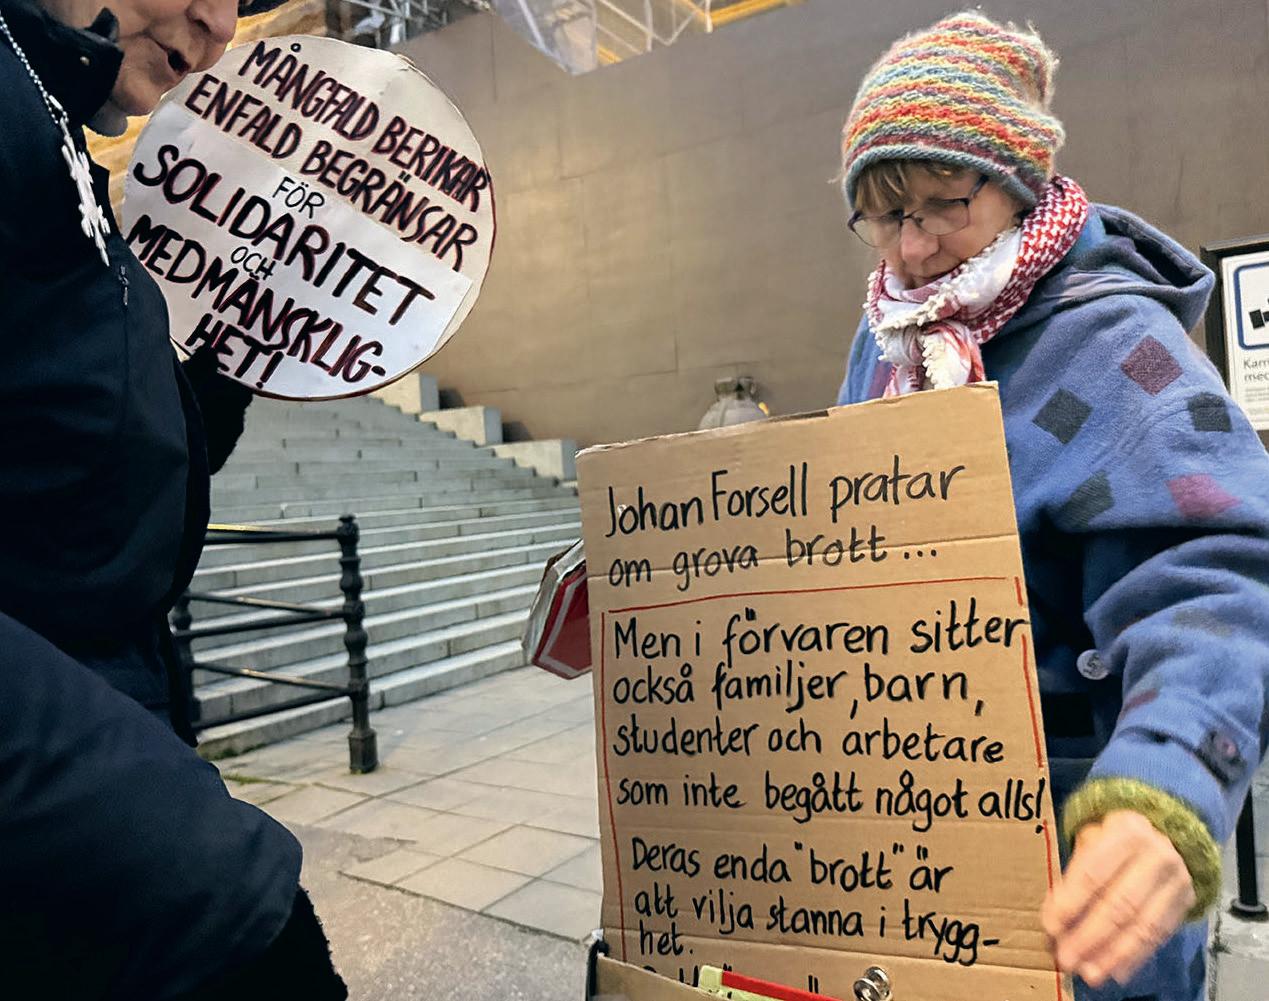 MÅNGFALD BERIKAR
ENFALD BEGRÄNSAR
FÖR
SOLIDARITET
OCH
MEDMÄNSKLIG-
HET!
Johan Forsell pratar
om grova brott...
Men i förvaren sitter
också familjer, barn,
studenter och arbetare
som inte begått något alls!
Deras enda "brott" är
att vilja stanna i trygg-
het.